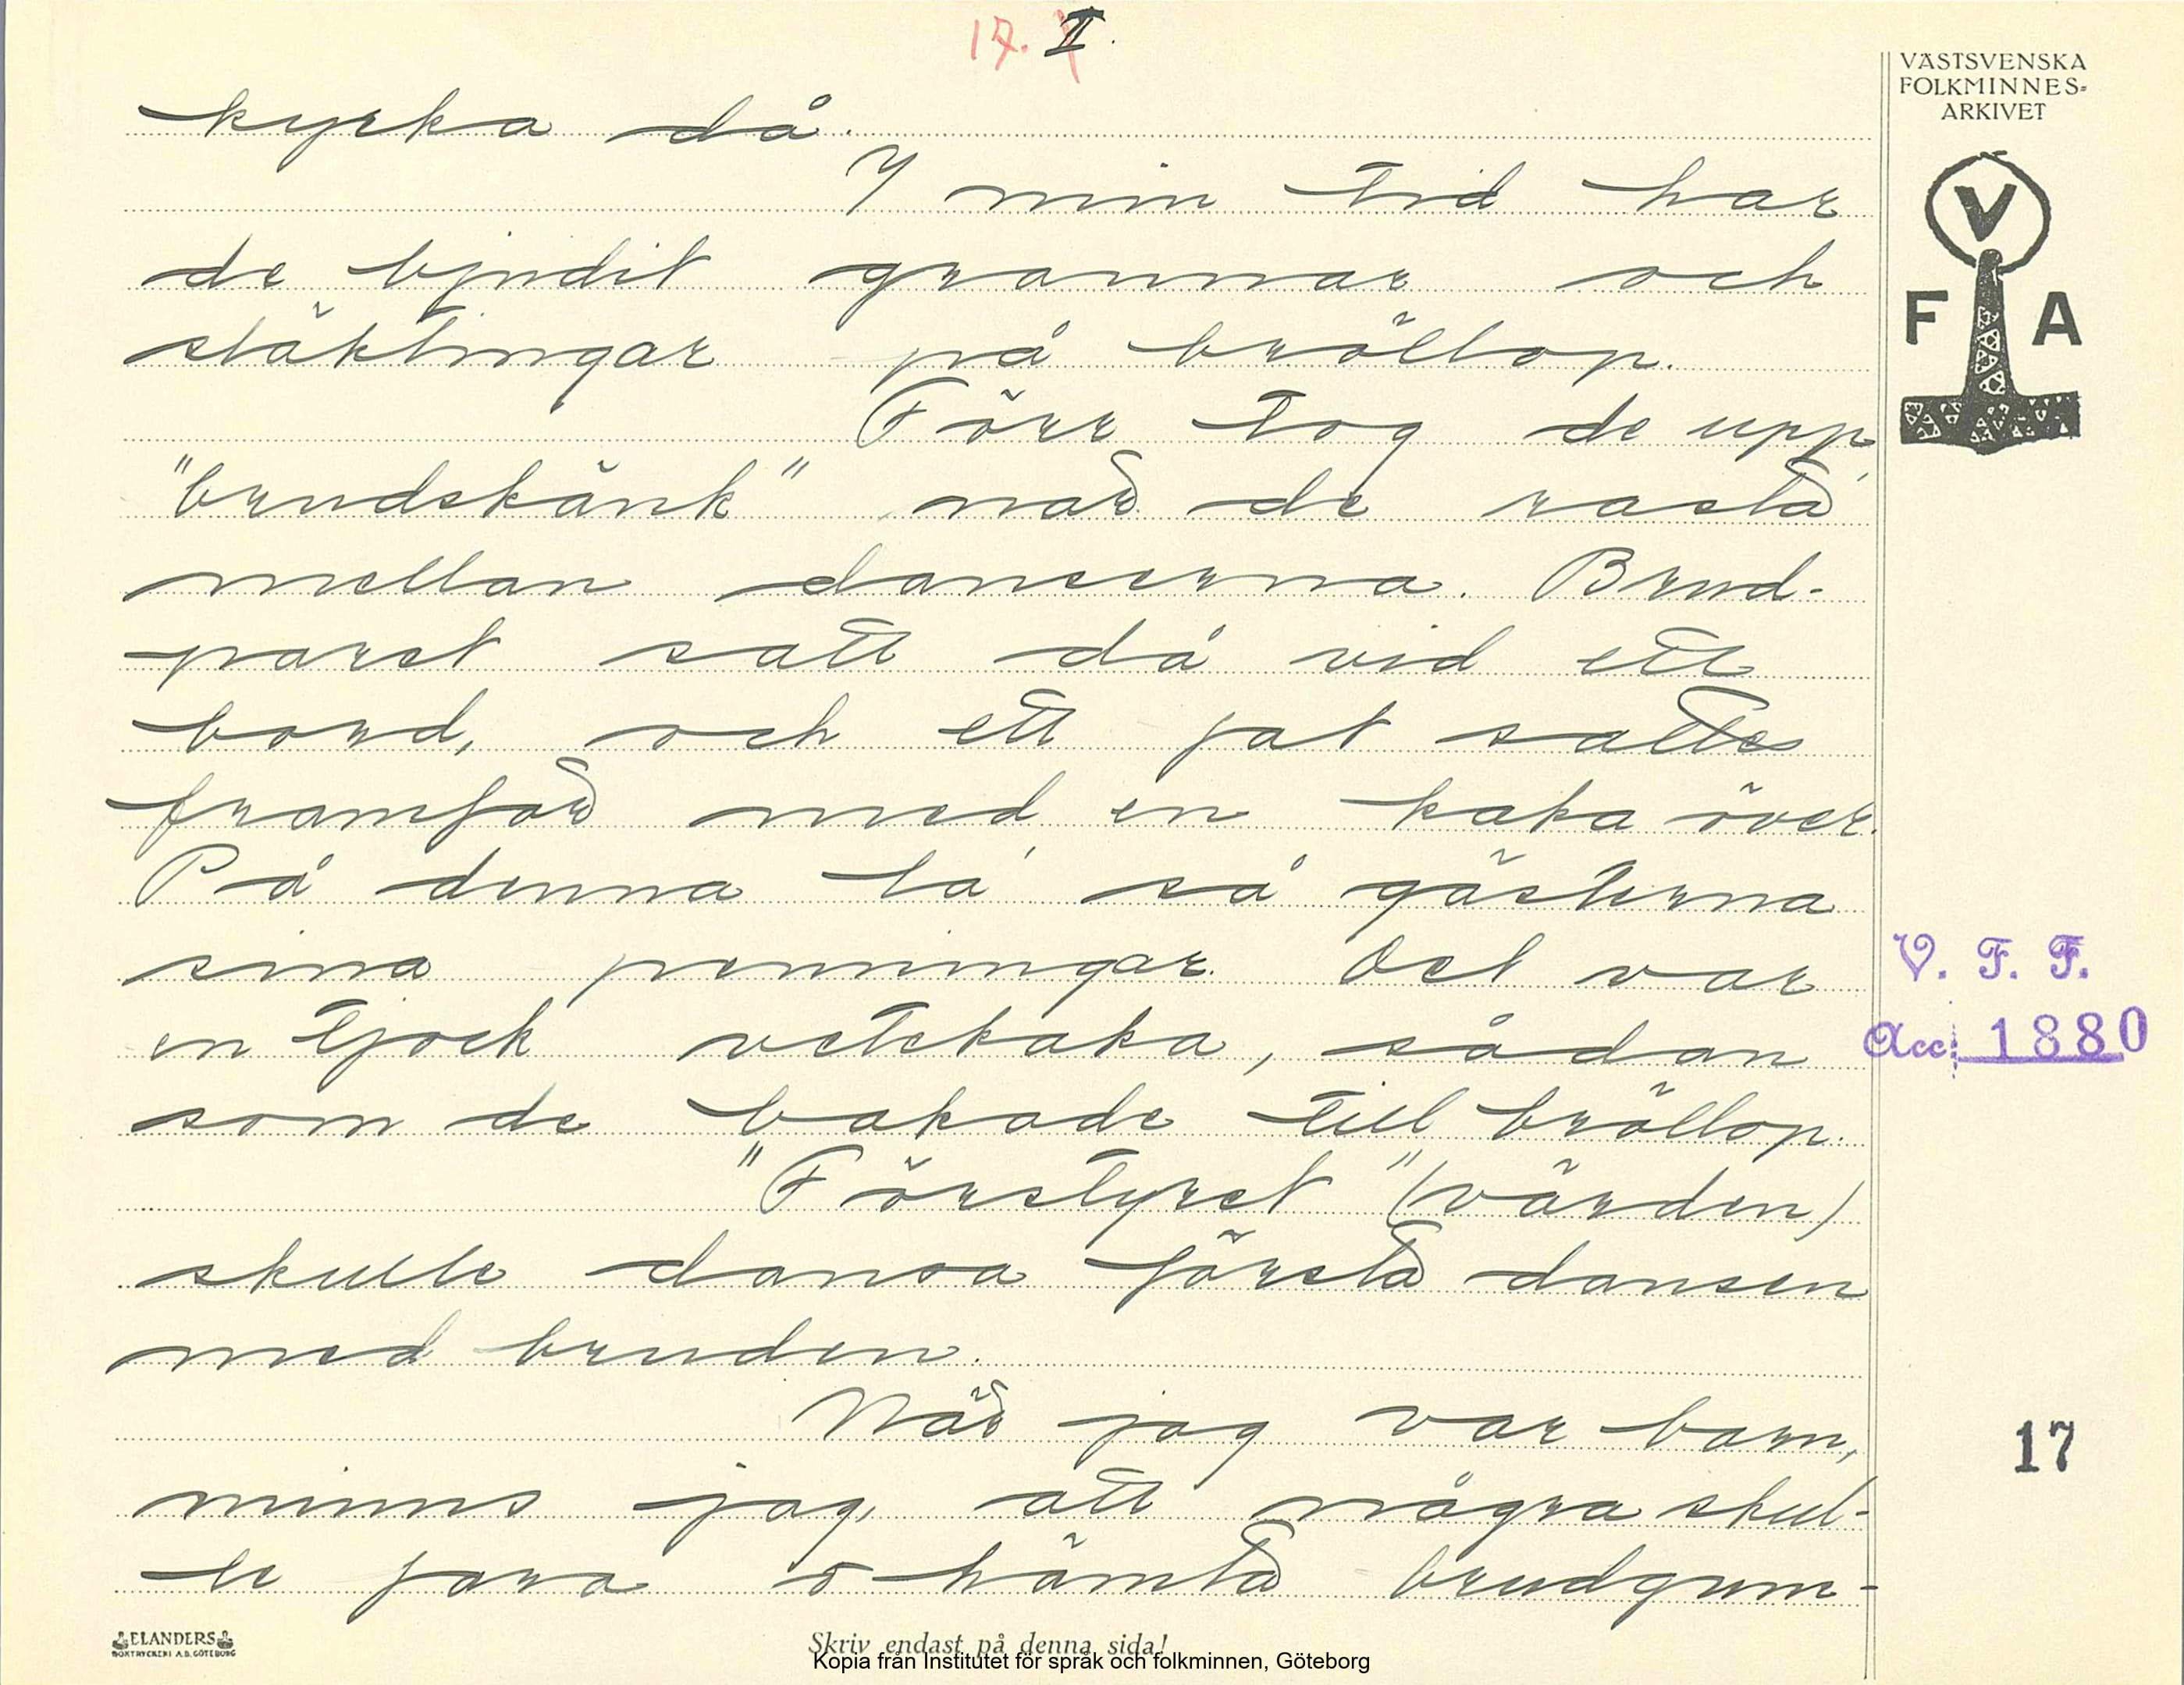 17. II.
VÄSTSVENSKA
FOLKMINNES-
ARKIVET
V
F A
kyrka då.
I min tid har
de bjudit grannar och
släktingar på bröllop.
Förr tog de upp
"brudskänk" när de rasta
mellan danserna. Brud-
paret satt då vid ett
bord, och ett fat sattes
framför med en kaka över.
På denna la så gästerna
sina penningar. Det var
en tjock vetekaka, sådan
som de bakade till bröllop.
"Förstyret" (värden)
skulle dansa första dansen
med bruden.
När jag var barn,
minns jag, att några skul-
le fara o hämta brudgum-
V. F. F.
Acc. 1880
17
ELANDERS
BOKTRYCKERI A.B. GÖTEBORG
Skriv endast på denna sida!
Kopia från Institutet för språk och folkminnen, Göteborg